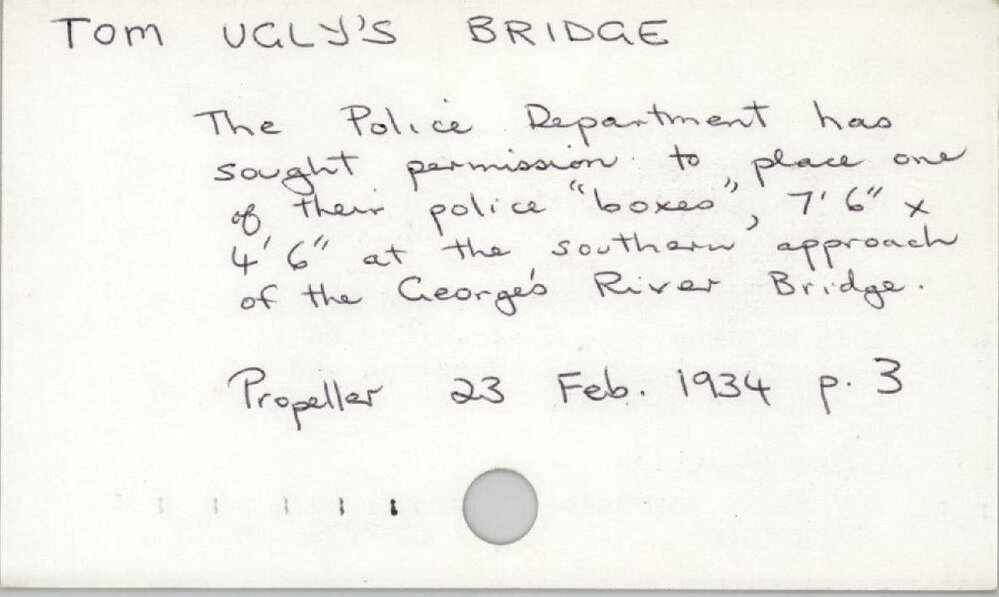 TOM UGLY'S BRIDGE
The Police Department has
sought permission to place one
of their police "boxes", 7' 6" x
4' 6" at the southern approach
of the George's River Bridge.
Propeller 23 Feb. 1934 p. 3